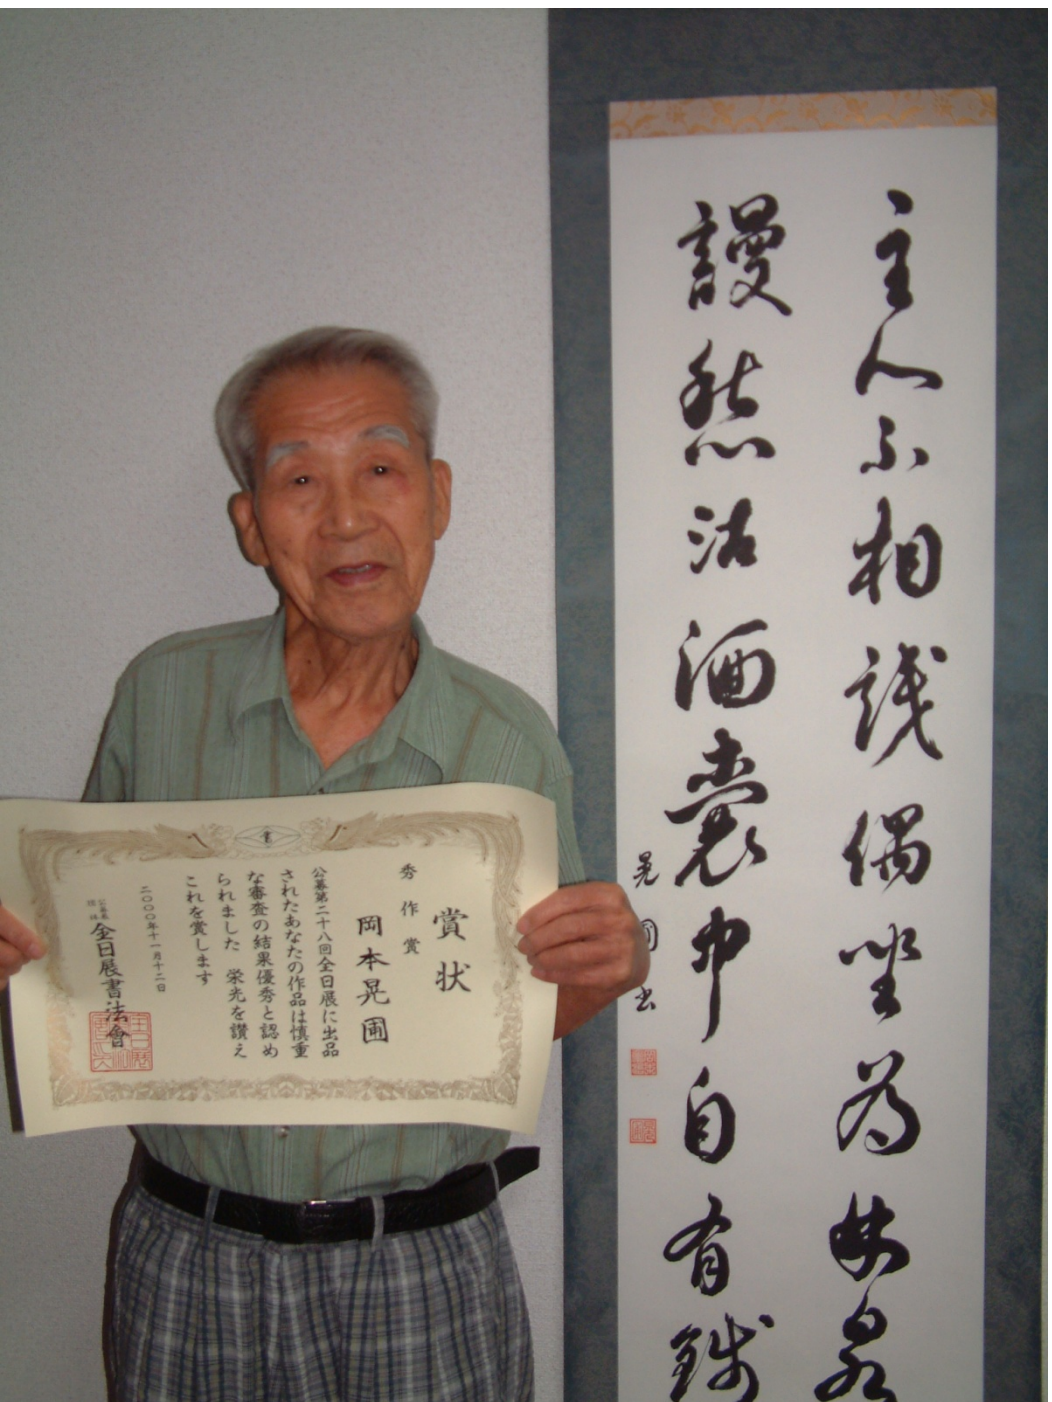 主人不相識偶坐為林泉
謾愁沽酒囊中自有錢
晃圃書
賞状
秀作賞
岡本晃圃
公募第二十八回全日展に出品
されたあなたの作品は慎重
な審査の結果優秀と認め
られました 栄光を讃え
これを賞します
二〇〇〇年十一月十二日
全日展書法會